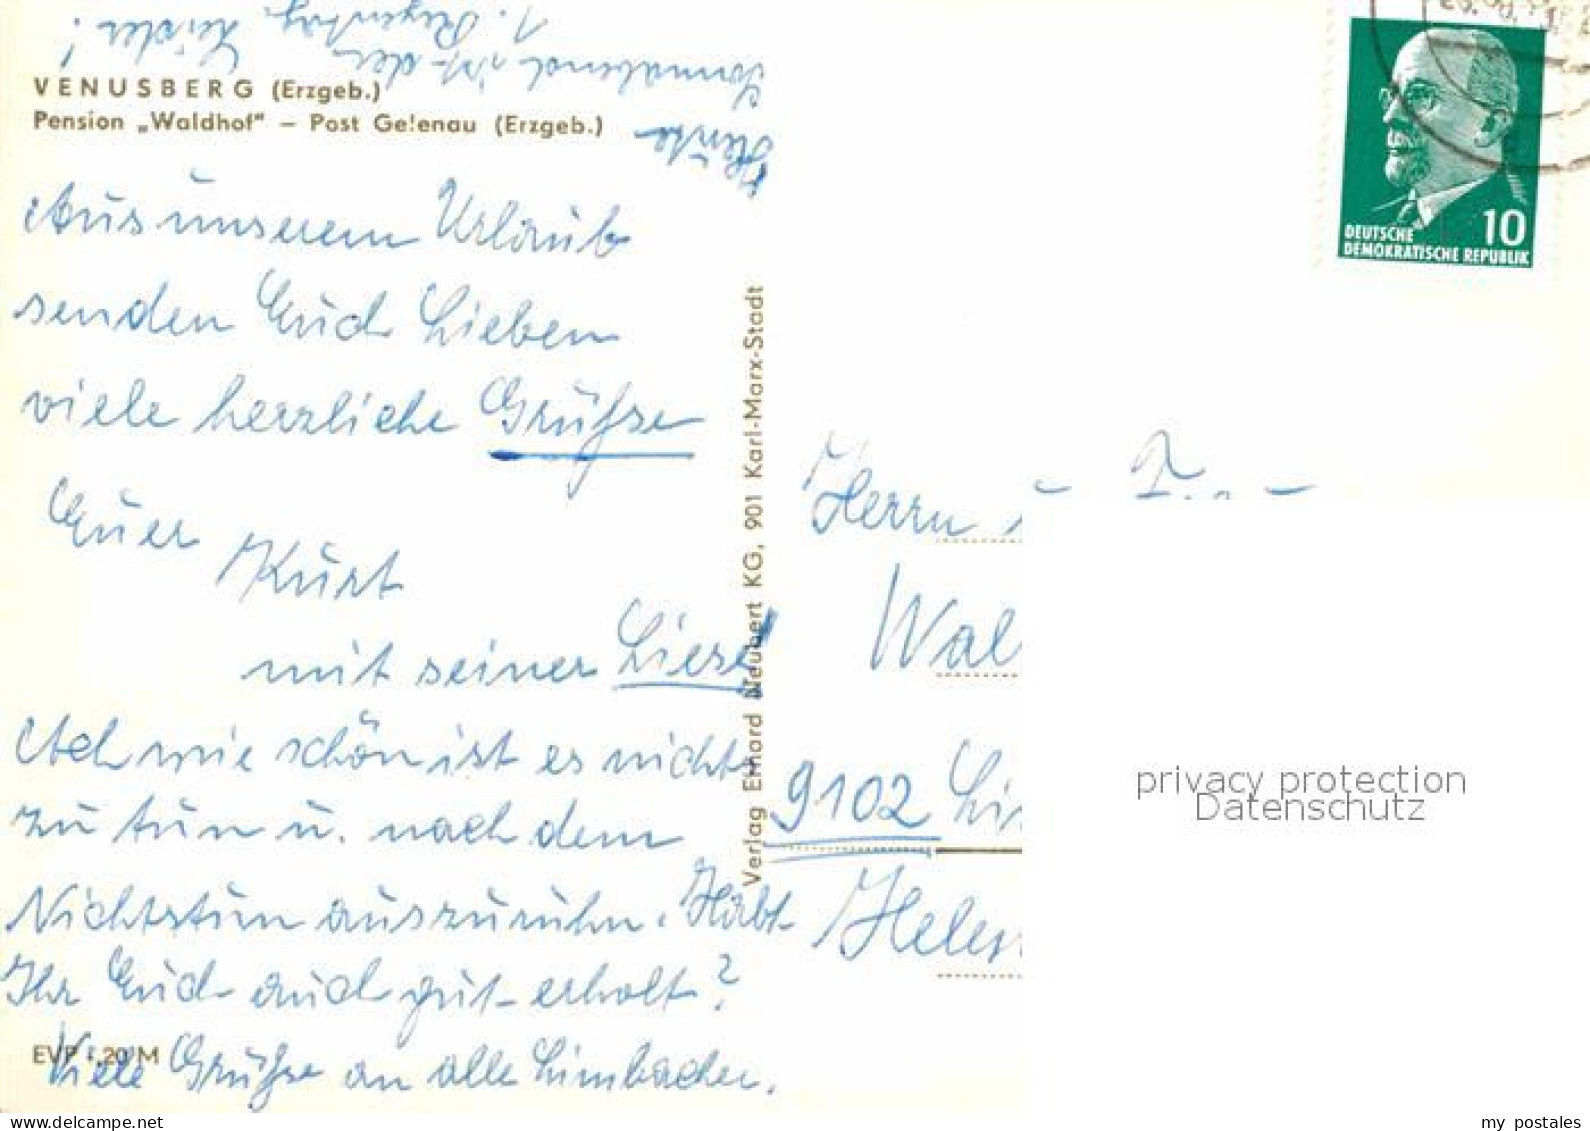 VENUSBERG (Erzgeb.)
Pension „Waldhof" – Post Gelenau (Erzgeb.)
Aus unserem Urlaub
senden Euch Lieben
viele herzliche Grüßse
Euer Kurt
mit seiner Liesel
Ach wie schön ist es nichts
zu tun u. nach dem
Nichtstun auszuruhn. Habt
Ihr Euch auch gut erholt?
Viele Grüßse an alle Limbacher.
Heute
Sonnabend ist der
1. Regentag. Leider!
EVP -,20 M
Verlag Erhard Neubert KG, 901 Karl-Marx-Stadt
DEUTSCHE
DEMOKRATISCHE REPUBLIK
10
Herrn
Wal
9102 Li
Helen
privacy protection
Datenschutz
my postales